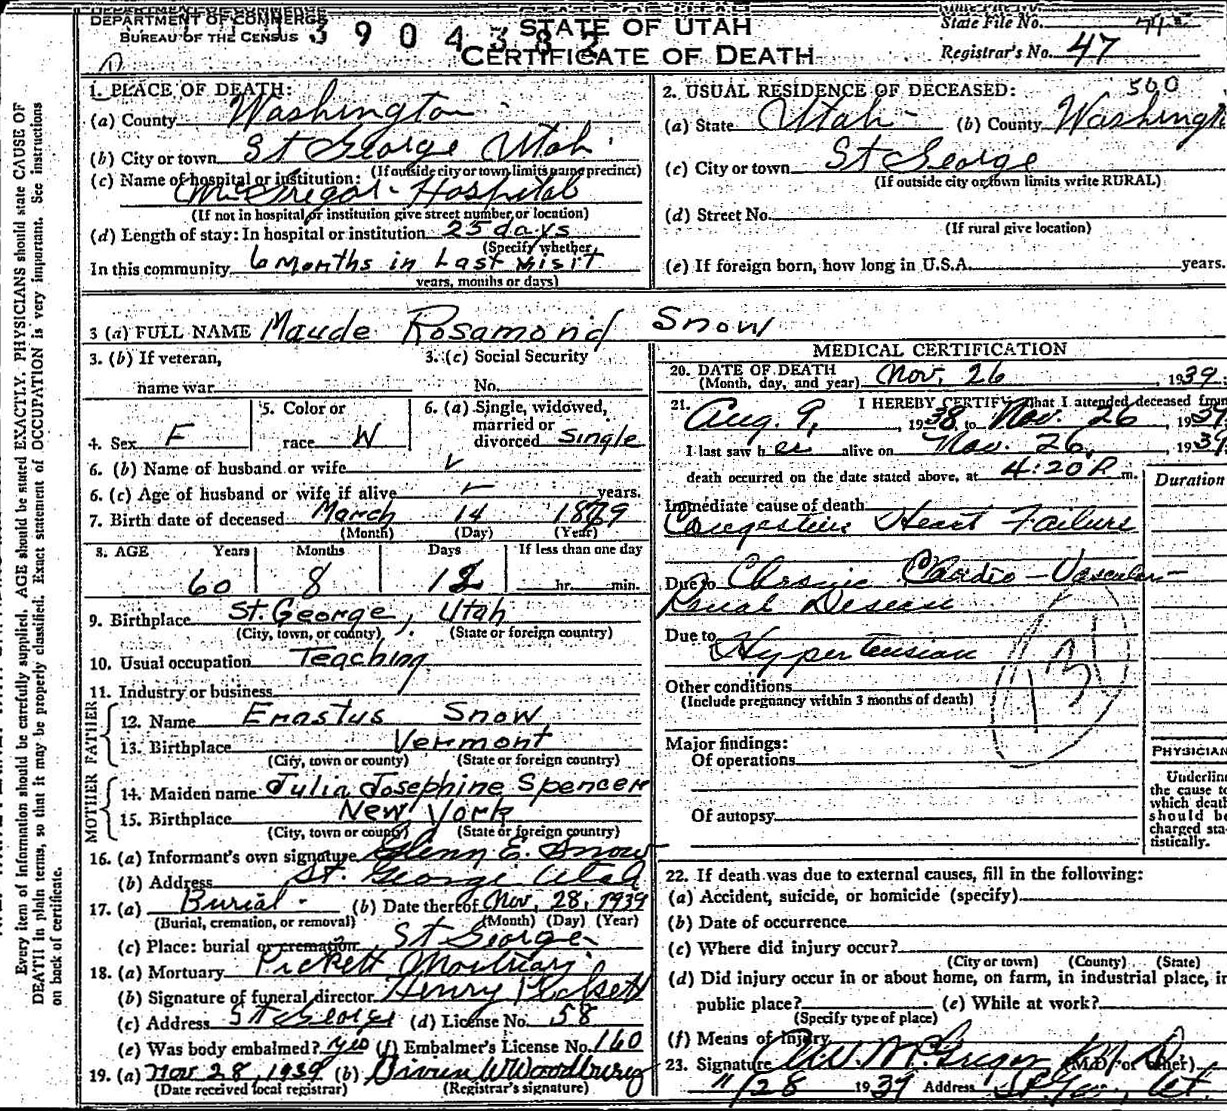 DEPARTMENT OF COMMERCE
BUREAU OF THE CENSUS
3904382
STATE OF UTAH
CERTIFICATE OF DEATH
State File No.
Registrar's No. 47
1. PLACE OF DEATH:
(a) County Washington
(b) City or town St George Utah
(If outside city or town limits name precinct)
(c) Name of hospital or institution:
McGregor Hospital
(If not in hospital or institution give street number or location)
(d) Length of stay: In hospital or institution 25 days
(Specify whether
In this community 6 Months in Last Visit
years, months or days)
2. USUAL RESIDENCE OF DECEASED: 500
(a) State Utah (b) County Washingt
(c) City or town St George
(If outside city or town limits write RURAL)
(d) Street No.
(If rural give location)
(e) If foreign born, how long in U.S.A. years.
3 (a) FULL NAME Maude Rosamond Snow
3. (b) If veteran,
name war
3. (c) Social Security
No.
4. Sex F
5. Color or
race W
6. (a) Single, widowed,
married or
divorced Single
6. (b) Name of husband or wife
6. (c) Age of husband or wife if alive years.
7. Birth date of deceased March 14 1879
(Month) (Day) (Year)
8. AGE Years Months Days If less than one day
60 8 12 hr. min.
9. Birthplace St. George, Utah
(City, town, or county) (State or foreign country)
10. Usual occupation Teaching
11. Industry or business
FATHER
12. Name Erastus Snow
13. Birthplace Vermont
(City, town or county) (State or foreign country)
MOTHER
14. Maiden name Julia Josephine Spencer
15. Birthplace New York
(City, town or county) (State or foreign country)
16. (a) Informant's own signature Glenn E. Snow
(b) Address St. George Utah
17. (a) Burial (b) Date thereof Nov. 28, 1939
(Burial, cremation, or removal) (Month) (Day) (Year)
(c) Place: burial or cremation St George
18. (a) Mortuary Pickett Mortuary
(b) Signature of funeral director Henry Pickett
(c) Address St George (d) License No. 58
(e) Was body embalmed? Yes (f) Embalmer's License No. 160
19. (a) Nov 28, 1939 (b) Woodbury
(Date received local registrar) (Registrar's signature)
MEDICAL CERTIFICATION
20. DATE OF DEATH
(Month, day, and year) Nov. 26, 1939
21. I HEREBY CERTIFY that I attended deceased from
Aug. 9, 1938, to Nov. 26, 1939
I last saw her alive on Nov. 26, 1939
death occurred on the date stated above, at 4:20 P m.
Duration
Immediate cause of death
Congestive Heart Failure
Due to Chronic Cardio-Vascular-
Renal Disease
Due to Hypertension
131
Other conditions
(Include pregnancy within 3 months of death)
Major findings:
Of operations
Of autopsy
PHYSICIAN
Underlin
the cause to
which death
should be
charged sta-
tistically.
22. If death was due to external causes, fill in the following:
(a) Accident, suicide, or homicide (specify)
(b) Date of occurrence
(c) Where did injury occur?
(City or town) (County) (State)
(d) Did injury occur in or about home, on farm, in industrial place, in
public place? (e) While at work?
(Specify type of place)
(f) Means of Injury
23. Signature McGregor (M.D. or other)
11/28 1939 Address St. Geo., Ut.
Every item of information should be carefully supplied. AGE should be stated EXACTLY. PHYSICIANS should state CAUSE OF
DEATH in plain terms, so that it may be properly classified. Exact statement of OCCUPATION is very important. See instructions
on back of certificate.